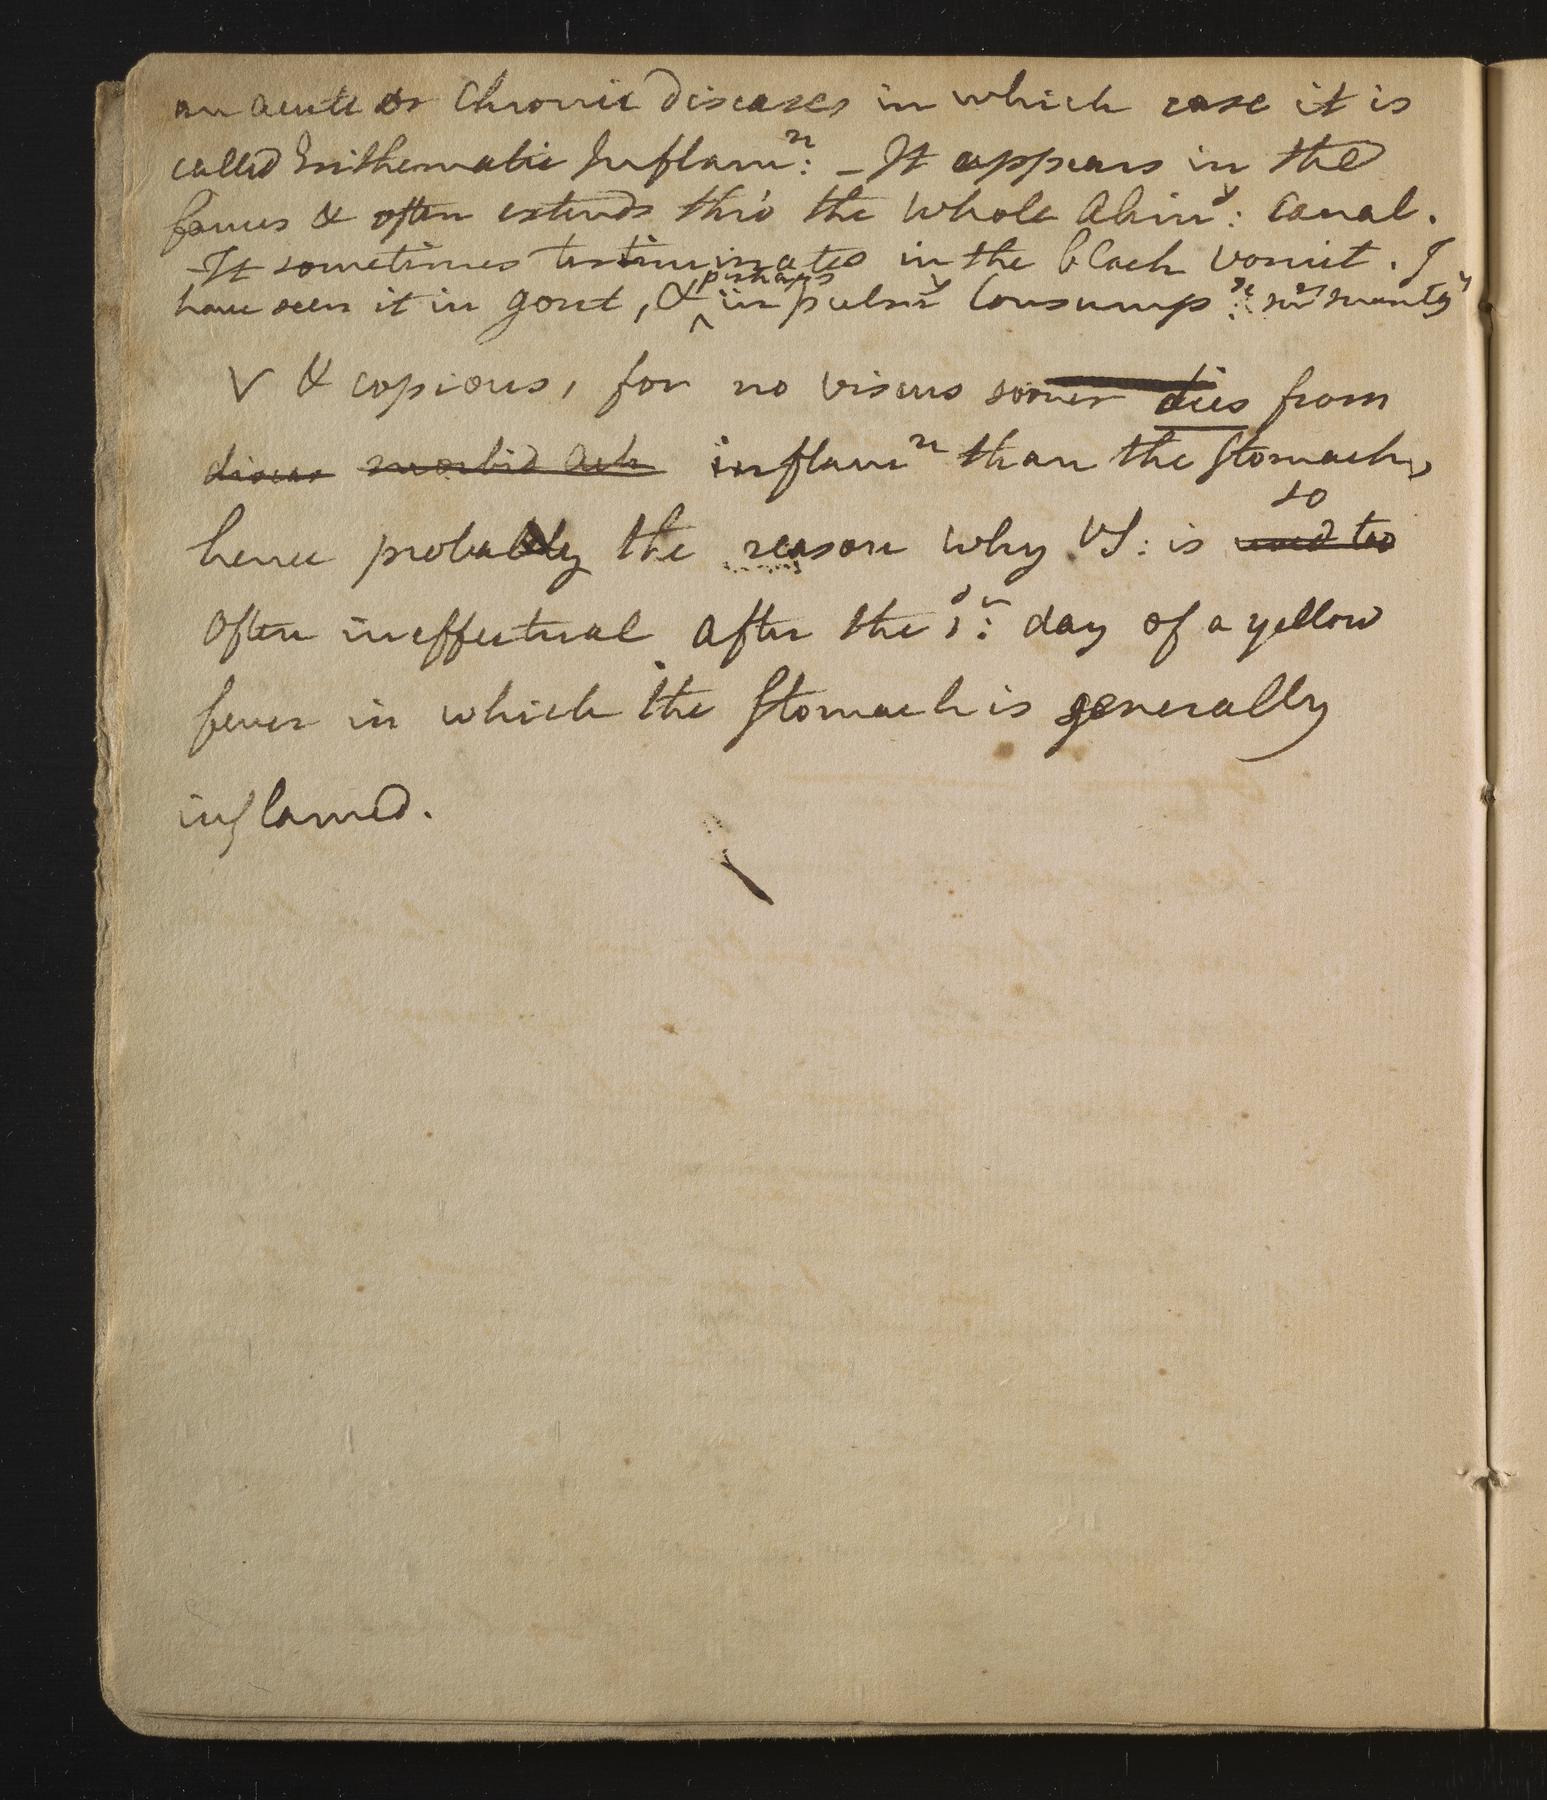 an acute or Chronic diseases in which case it is
called Erithematic Inflamn: - It appears in the
fauces & often extends thro' the whole Alimy: Canal.
- It sometimes terminates in the black vomit. I
have seen it in gout, & ^perhaps in pulmy Consumpn:
V & copious, for no viscus sooner dies from
disease morbid act inflamn than the stomach,
hence probably the reason why VS: is used too so
often ineffectual after the day of a yellow
fever in which the stomach is generally
inflamed.